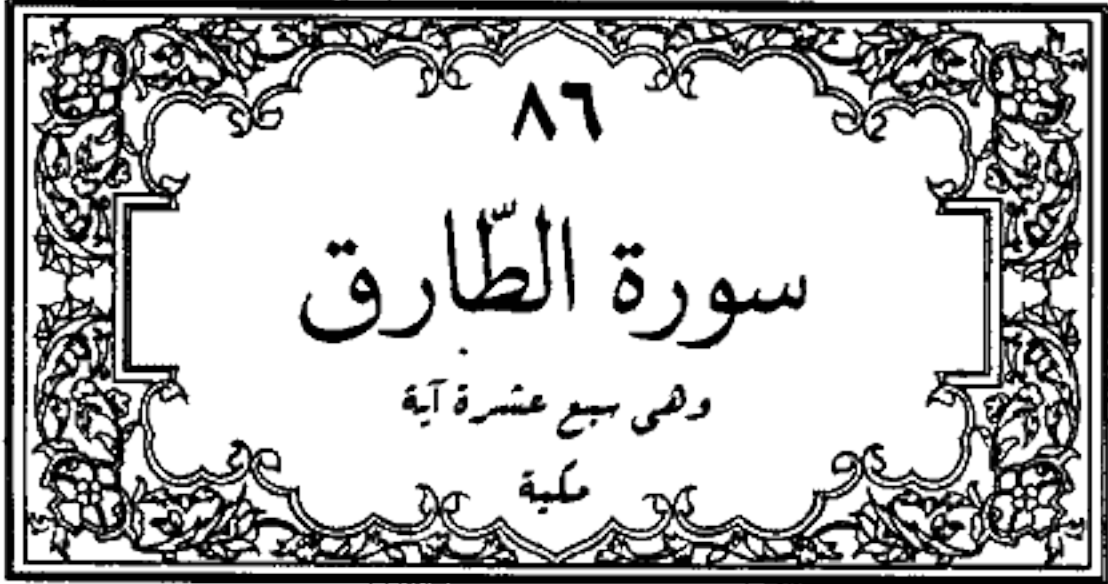 ٨٦
سورة الطّارق
وهى سبع عشرة آية
مكية